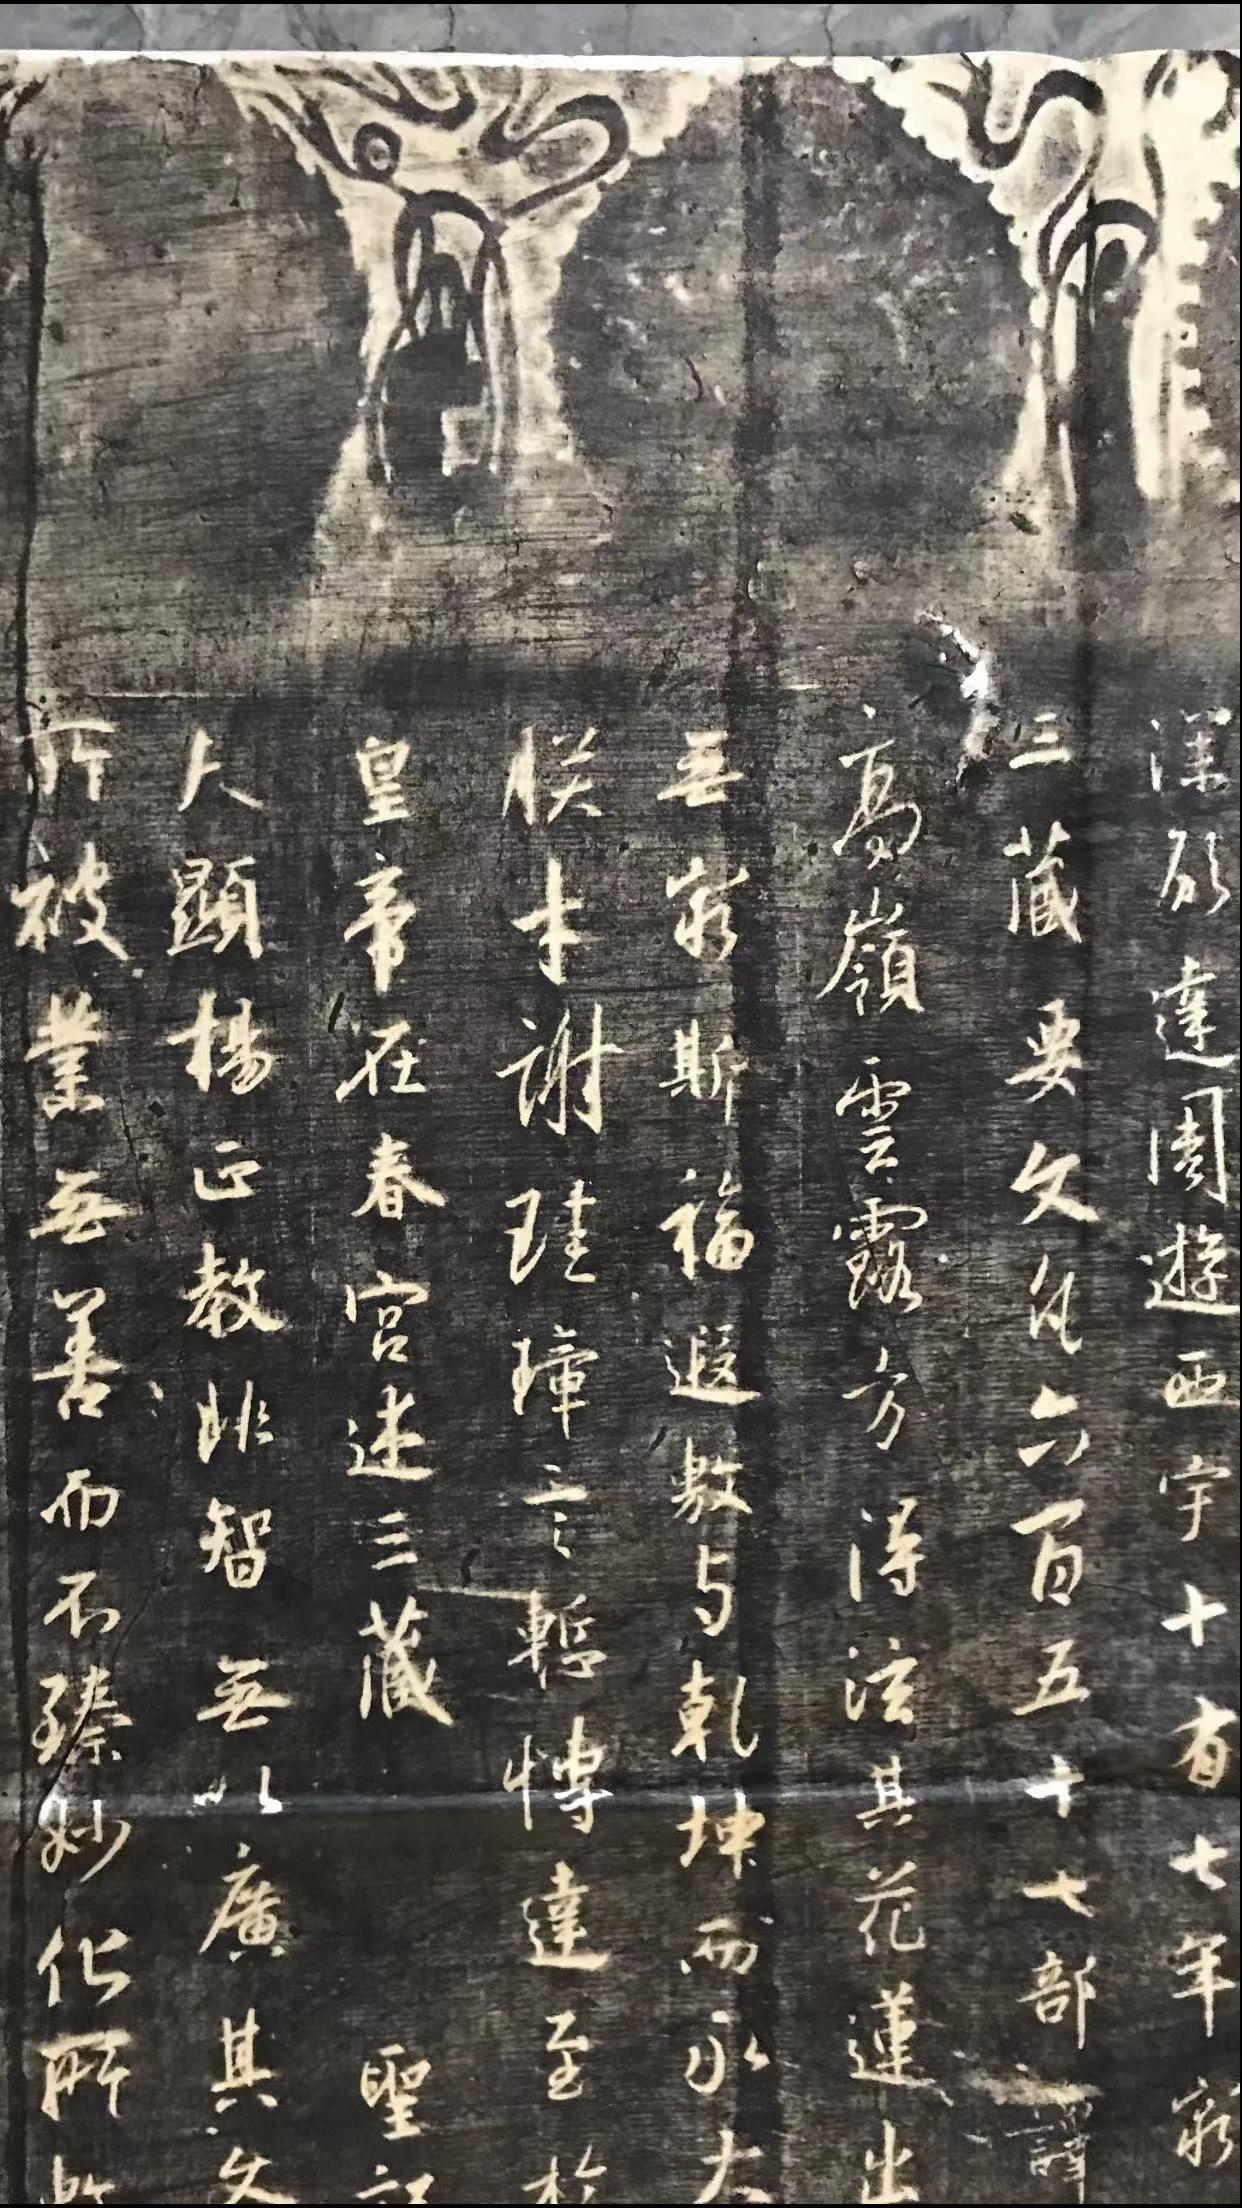 深願達周遊西宇十有七年窮
三藏要文凡六百五十七部譯
高嶺雲露方得泫其花蓮出
無窮斯福遐敷与乾坤而永大
朕才謝珪璋言慙博達至於
皇帝在春宮述三藏 聖記
夫顯揚正教非智無以廣其文
所被業無善而不臻妙化所敷